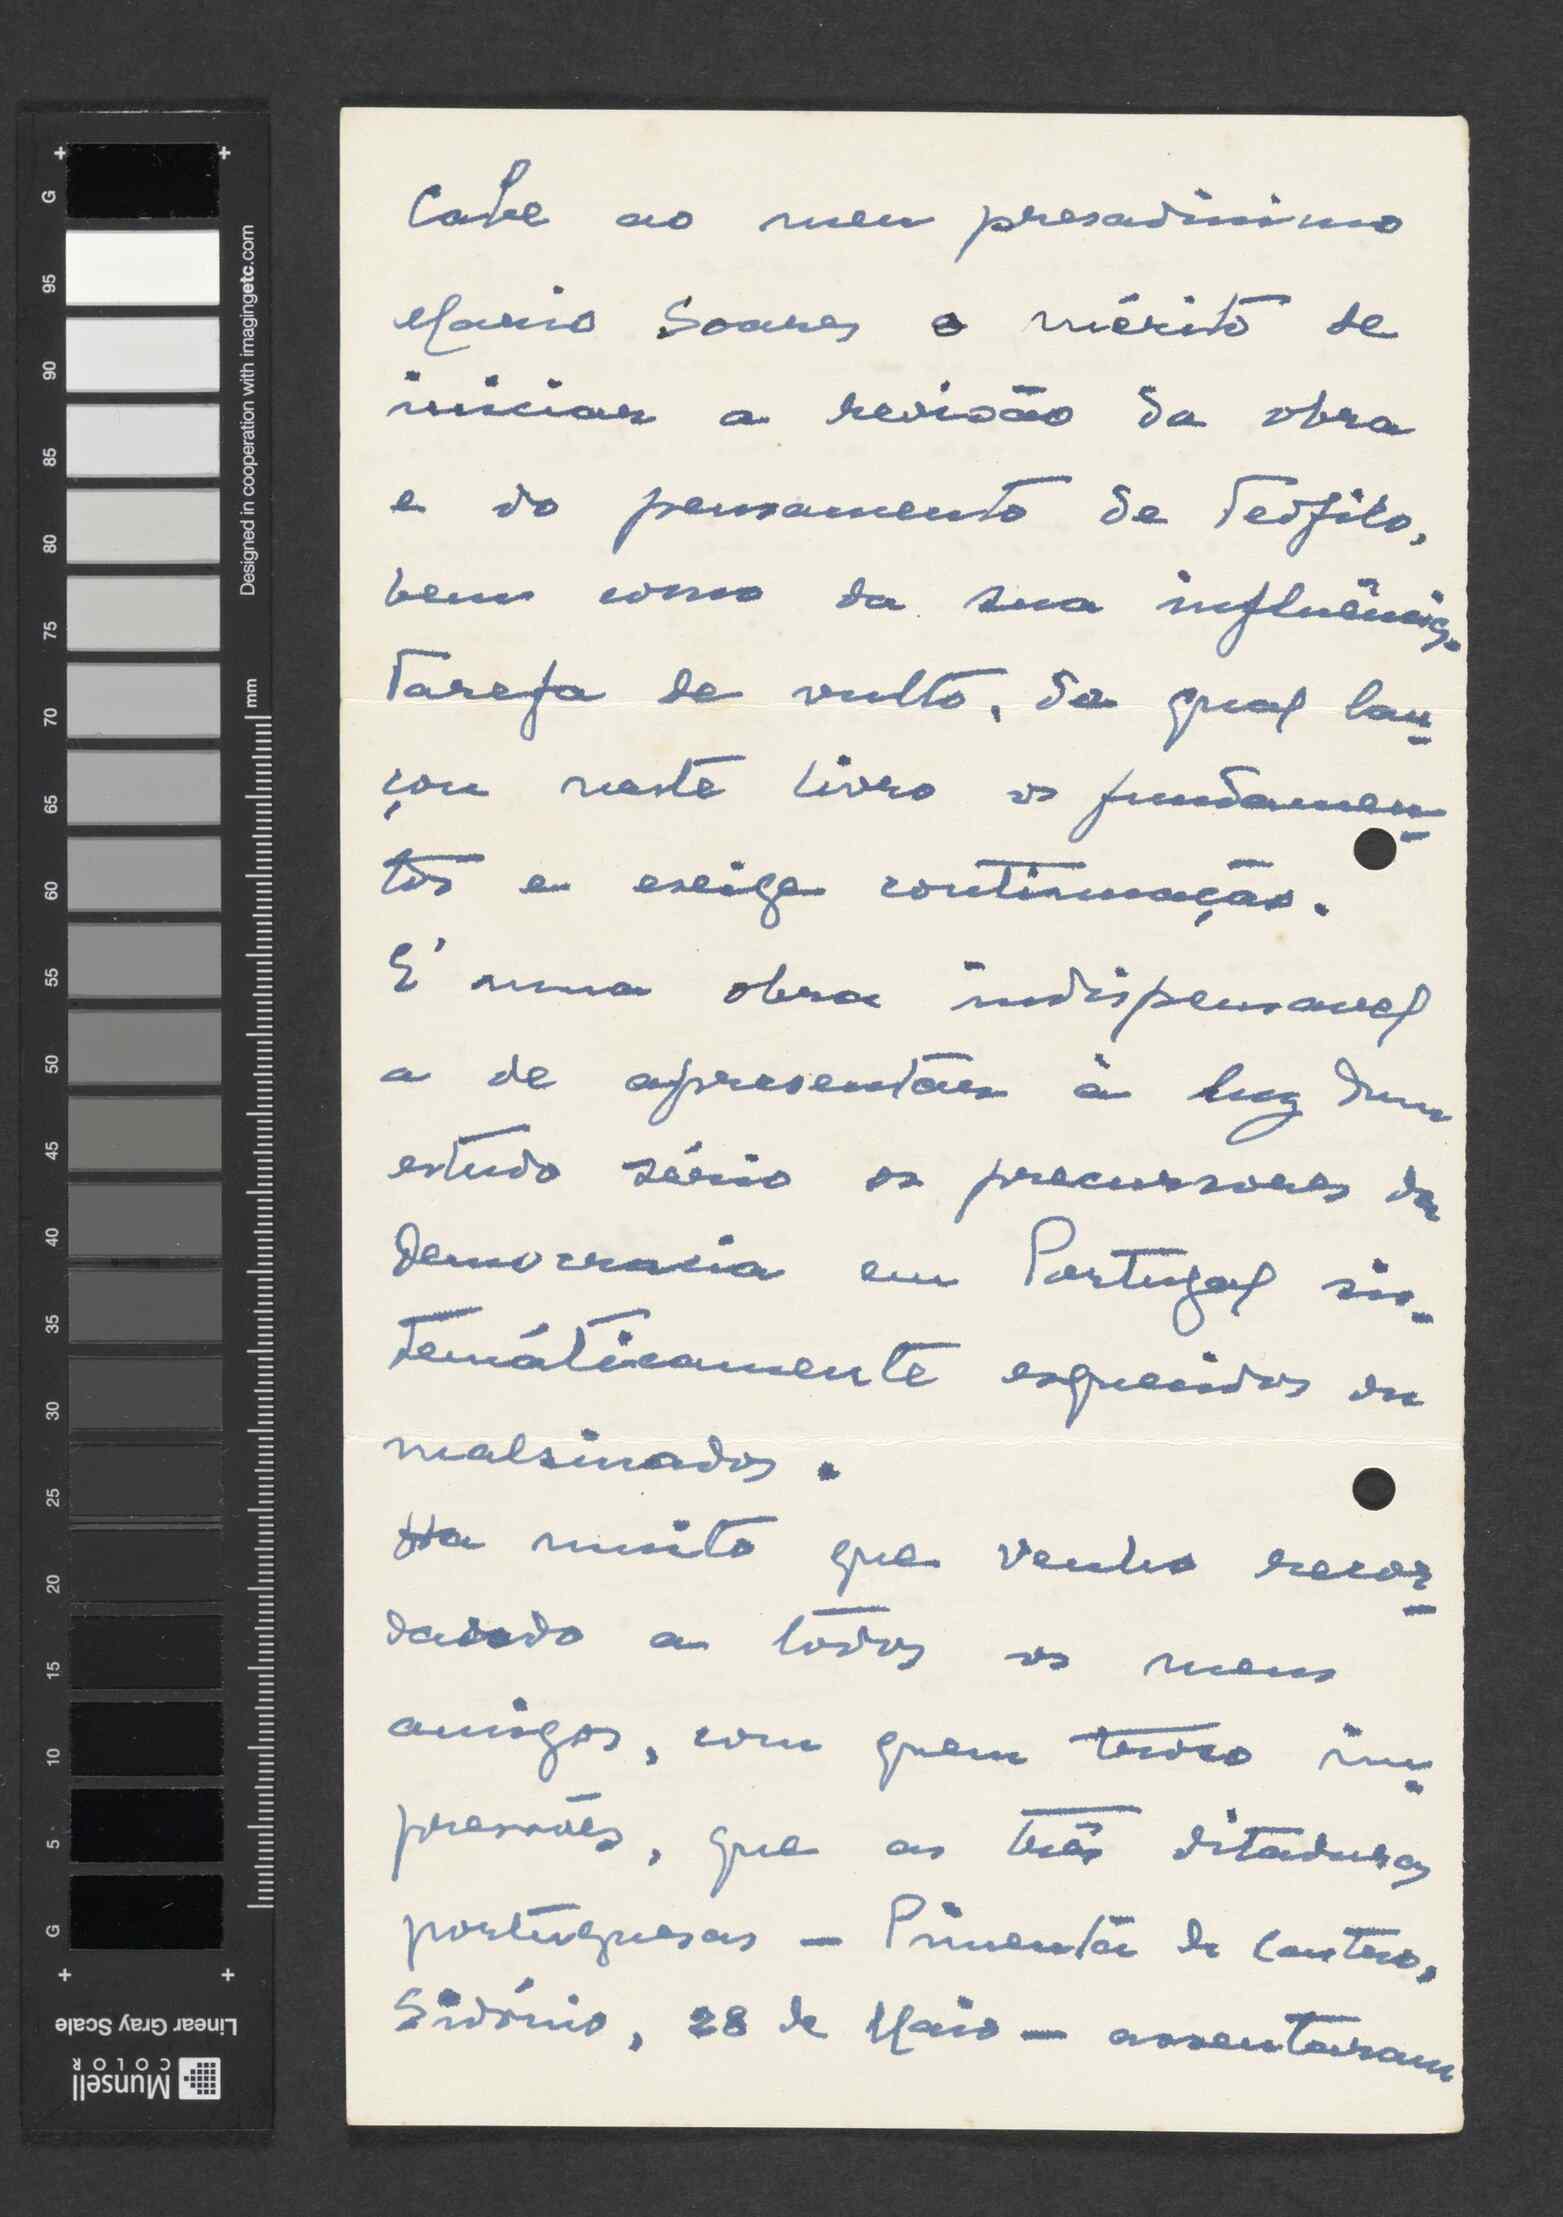 Cabe ao meu presadissimo
Mario Soares o mérito de
iniciar a revisão da obra
e do pensamento de Teófilo,
bem como da sua influência.
Tarefa de vulto, da qual lan-
çou neste livro os fundamen-
tos e exige continuação.
E' uma obra indispensavel
a de apresentar à luz dum
estudo sério os precursores da
democracia em Portugal sis-
temáticamente esquecidos ou
malsinados.
Ha muito que venho recor-
dando a todos os meus
amigos, com quem troco im-
pressões, que as três ditaduras
portuguesas – Pimenta de Castro,
Sidónio, 28 de Maio – assentaram
G 95 90 85 80 75 70 65 60 55 50 45 40 35 30 25 20 15 10 5 G
Designed in cooperation with imagingetc.com
mm
Linear Gray Scale
Munsell
COLOR